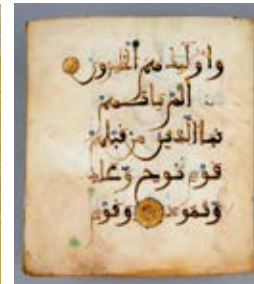 واولئك هم الخسرون
الم ياتهم
نبا الذين من قبلهم
قوم نوح وعاد
وثمود وقوم